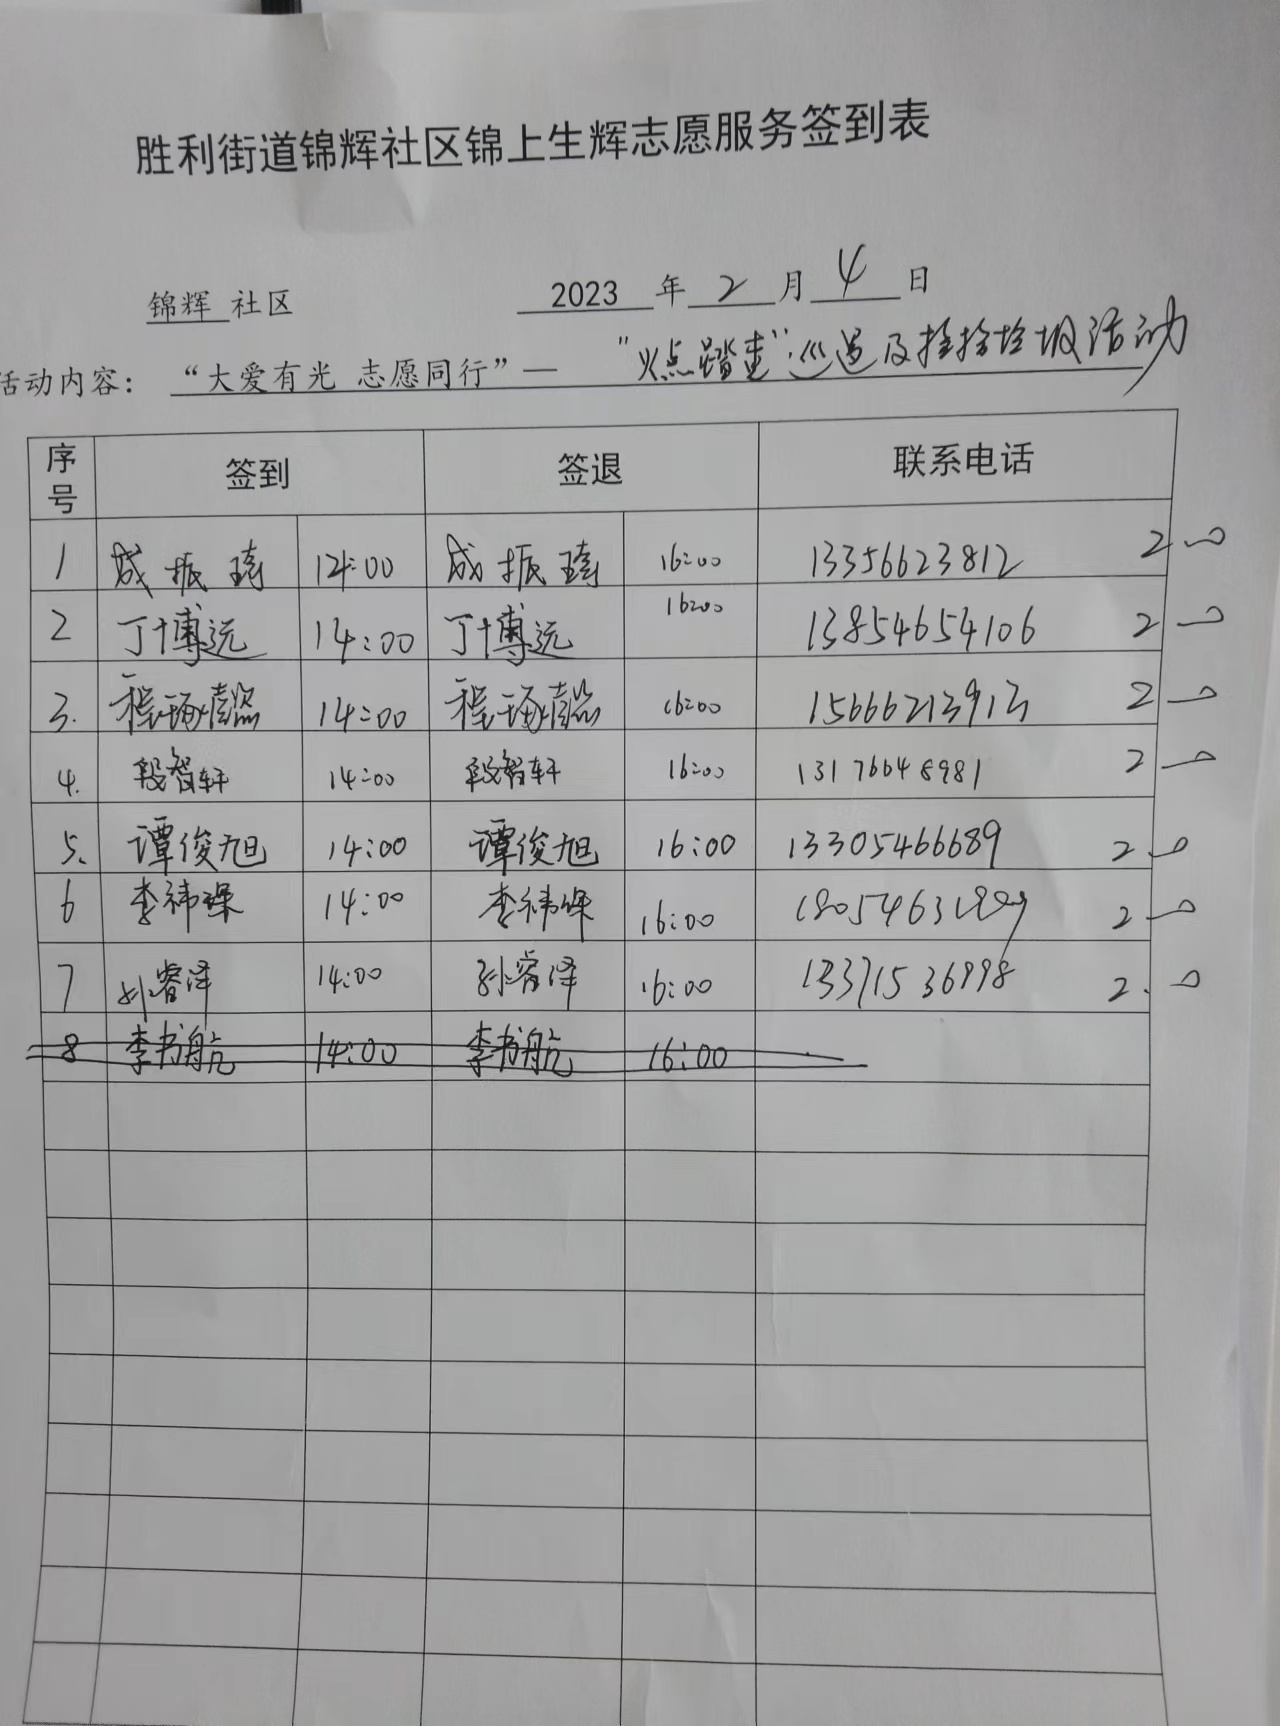 胜利街道锦辉社区锦上生辉志愿服务签到表
锦辉 社区 2023 年 2 月 4 日
活动内容： “大爱有光 志愿同行”— “火点踏查”巡逻及捡拾垃圾活动
序号 签到 签退 联系电话
1 成振琦 14:00 成振琦 16:00 13356623812 2-0
2 丁博远 14:00 丁博远 16:00 13854654106 2-0
3. 程 14:00 程 16:00 2-0
4. 段智轩 14:00 段智轩 16:00 13176648981 2-0
5. 谭俊旭 14:00 谭俊旭 16:00 13305466689 2-0
6 李祎琛 14:00 李祎琛 16:00 2-0
7 孙睿泽 14:00 孙睿泽 16:00 13371536998 2.0
8 李书航 14:00 李书航 16:00